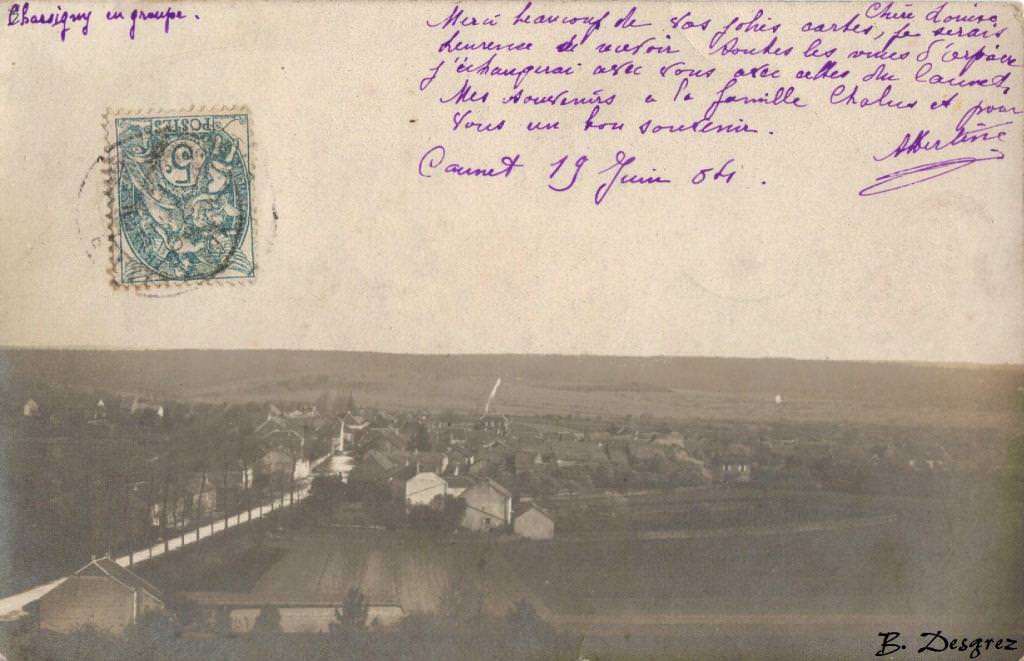 Charsigny en groupe.
Chère Louise
Merci beaucoup de vos jolies cartes, je serais
heureuse de recevoir toutes les vues d'
j'échangerai avec vous avec celles du Cannet,
Mes souvenirs a la famille Chalus et pour
vous un bon souvenir.
Albertine
Cannet 19 Juin 04.
POSTES
5
B. Desgrez